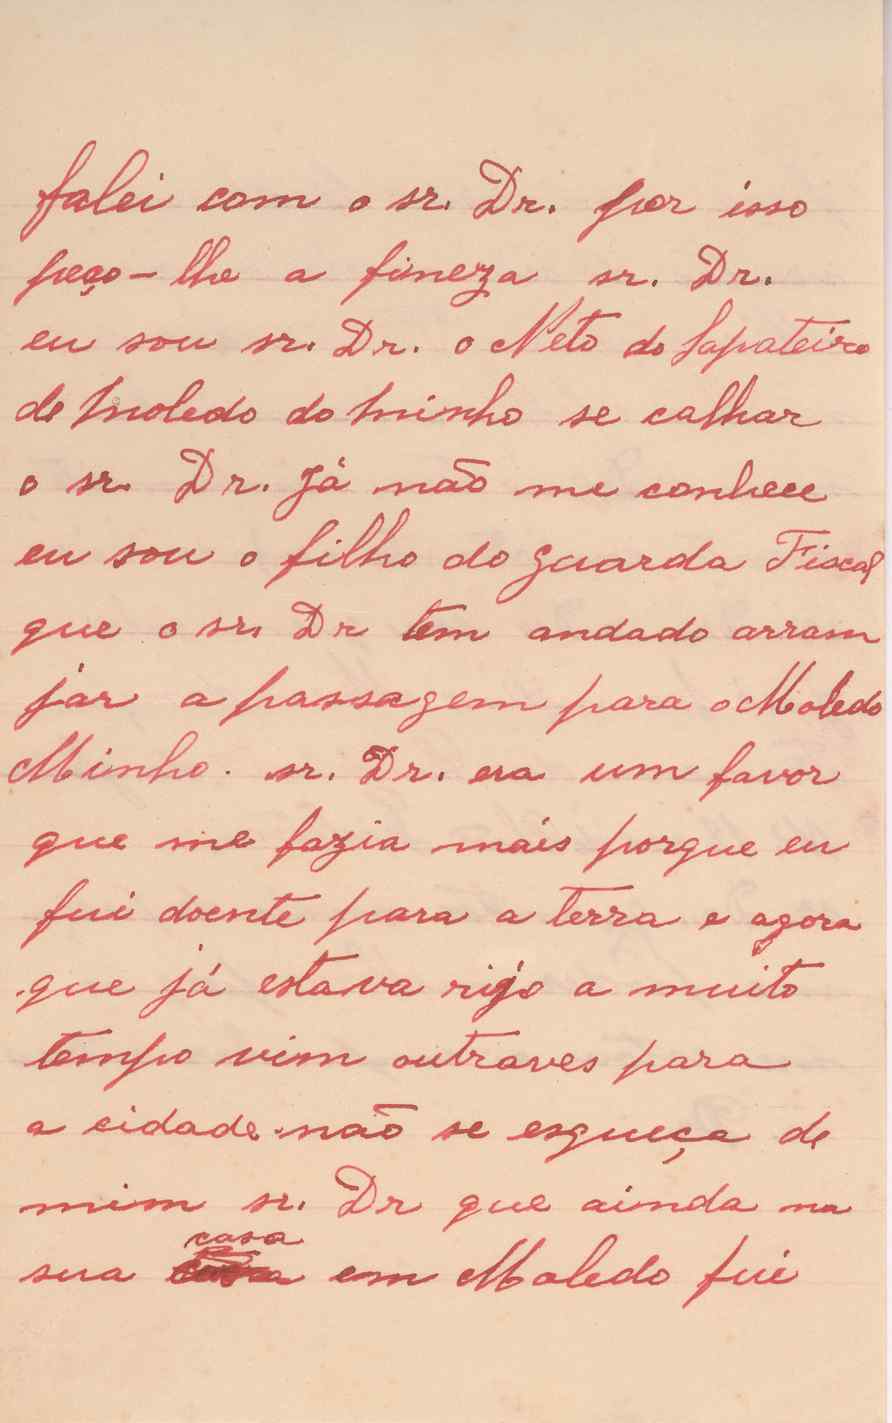 falei com o sr. Dr. por isso
peço-lhe a fineza sr. Dr.
eu sou sr. Dr. o Neto do Sapateiro
de Moledo do Minho se calhar
o sr. Dr. Já não me conhece
eu sou o filho do guarda Fiscal
que o sr. Dr tem andado arram
jar a passagem para o Moledo
Minho. sr. Dr. era um favor
que me fazia mais porque eu
fui doente para a terra e agora
que já estava rijo a muito
tempo vim outraves para
a cidade. não se esqueça de
mim sr. Dr que ainda na
sua casa em Moledo fui